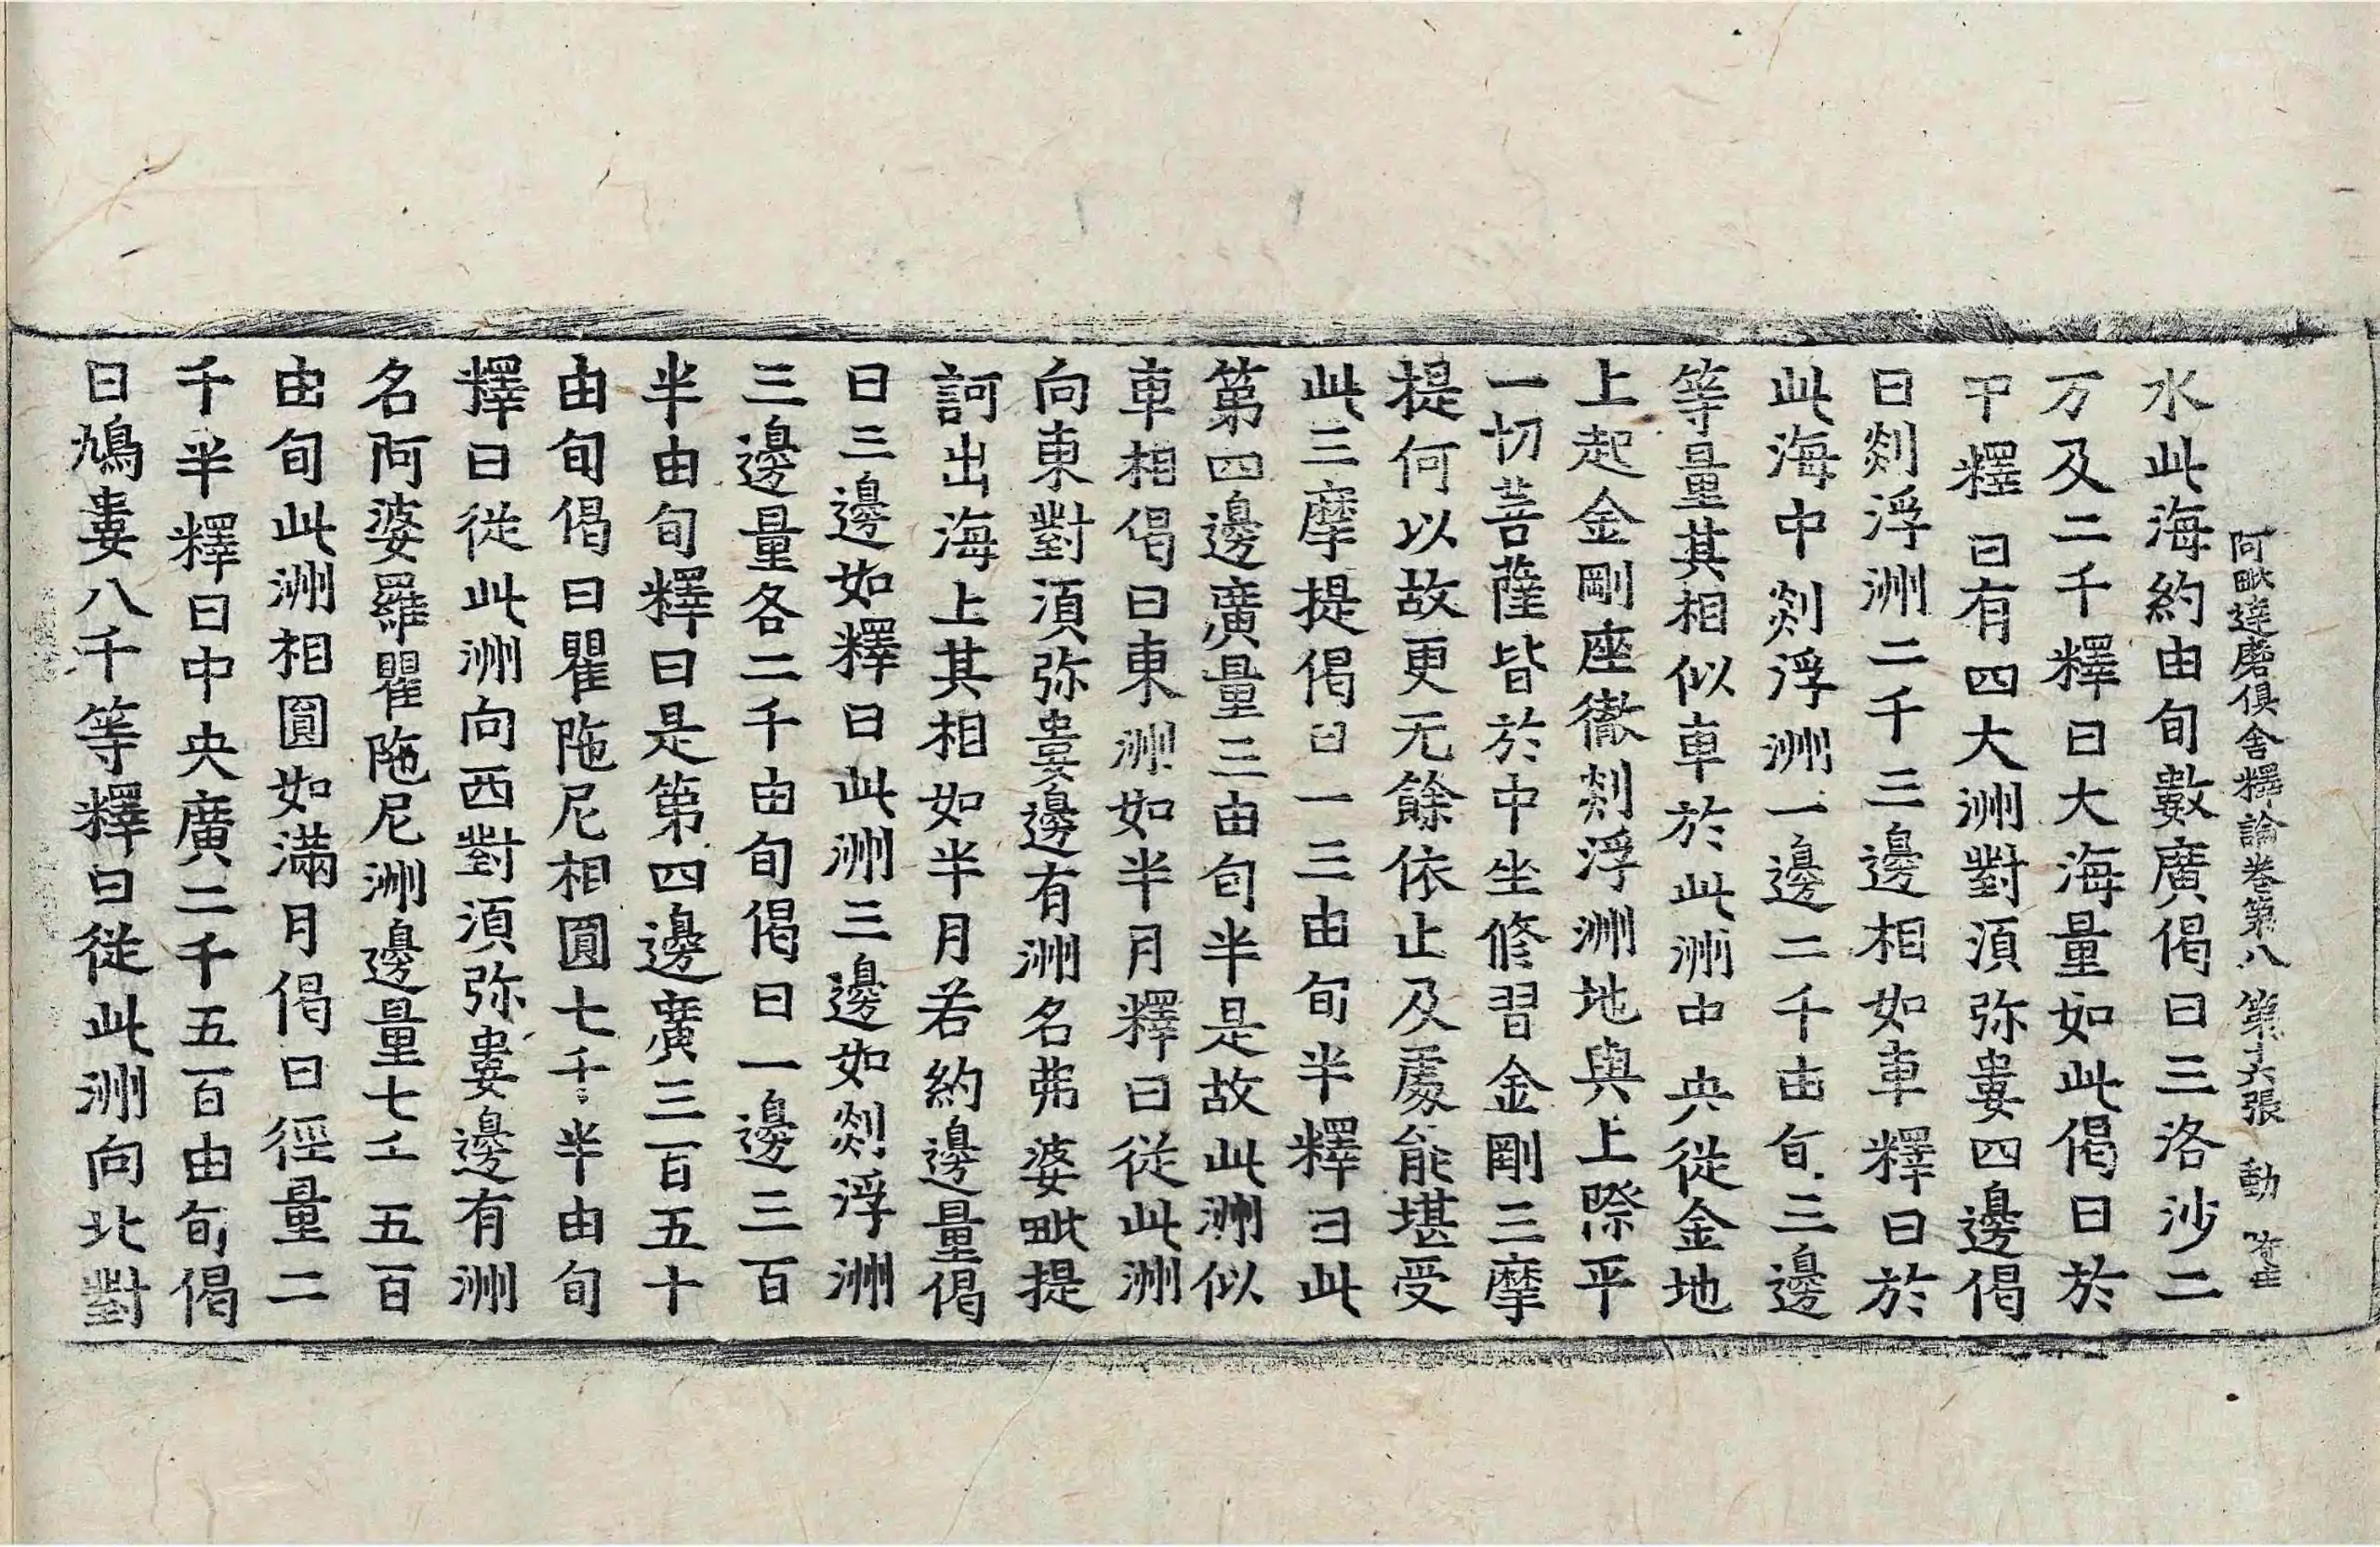 阿毗達磨俱舍釋論卷第八 第六張 動
水此海約由旬數廣偈曰三洛沙二
万及二千釋曰大海量如此偈曰於
中釋曰有四大洲對湏弥婁四邊偈
曰剡浮洲二千三邊相如車釋曰於
此海中剡浮洲一邊二千由旬三邊
等量其相似車於此洲中央從金地
上起金剛座徹剡浮洲地與上際平
一切菩薩皆於中坐修習金剛三摩
提何以故更无餘依止及處能堪受
此三摩提偈曰一三由旬半釋曰此
第四邊廣量三由旬半是故此洲似
車相偈曰東洲如半月釋曰從此洲
向東對湏弥婁邊有洲名弗婆毗提
訶出海上其相如半月若約邊量偈
曰三邊如釋曰此洲三邊如剡浮洲
三邊量各二千由旬偈曰一邊三百
半由旬釋曰是第四邊廣三百五十
由旬偈曰瞿陁尼相圓七千半由旬
釋曰從此洲向西對湏弥婁邊有洲
名阿婆羅瞿陁尼洲邊量七千五百
由旬此洲相圓如滿月偈曰徑量二
千半釋曰中央廣二千五百由旬偈
曰鳩婁八千等釋曰從此洲向北對